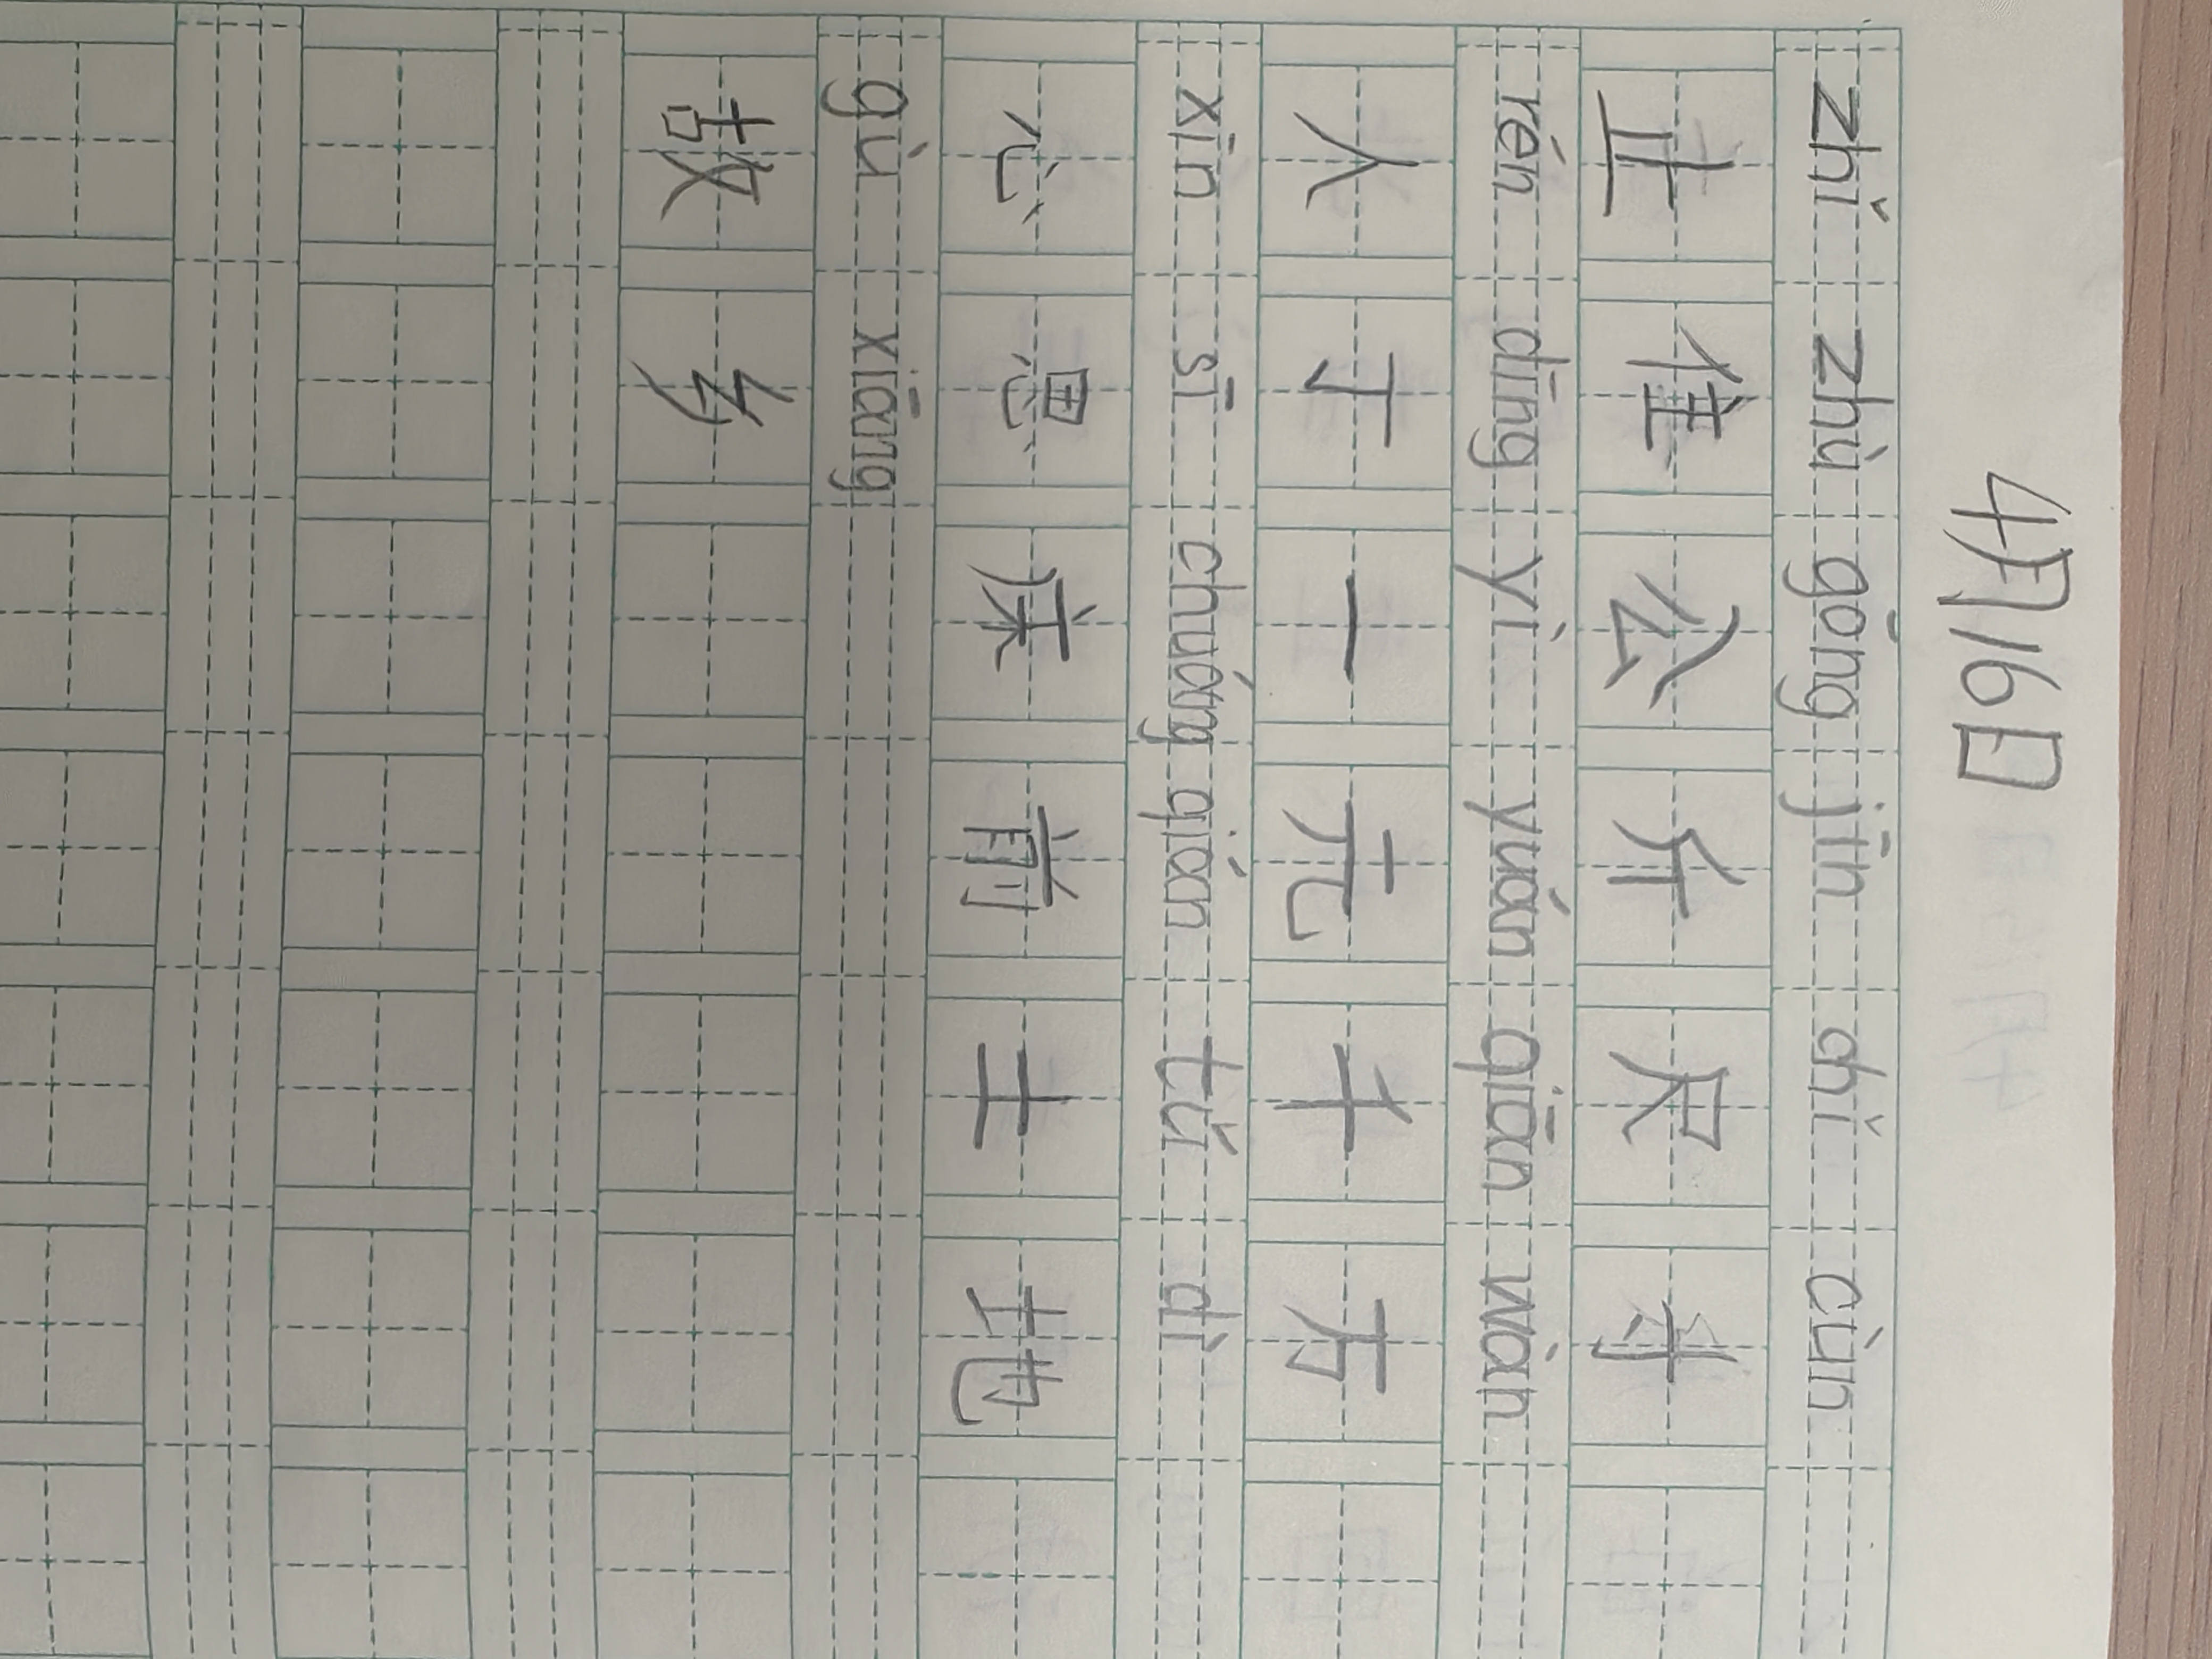 4月16日
zhǐ zhù gōng jīn chǐ cùn
止住公斤尺寸
rén dīng yì yuán qiān wàn
人丁一元千万
xīn sī chuáng qián tǔ dì
心思床前土地
gù xiāng
故乡